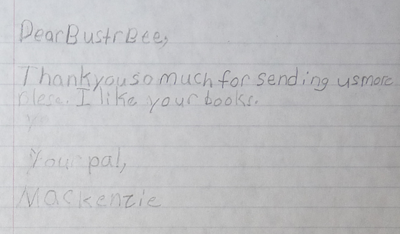 Dear BustrBee,
Thank you so much for sending us more
plese. I like your books.
Y
Your pal,
Mackenzie